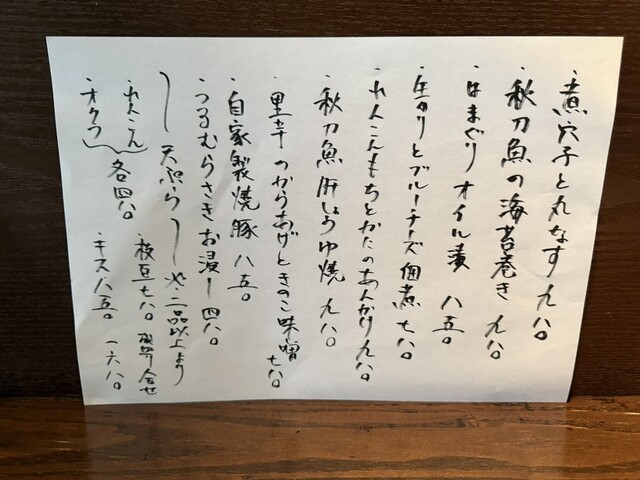 ・煮穴子と丸なす 九八〇
・秋刀魚の海苔巻き 九八〇
・はまぐりオイル漬 八五〇
・生のりとブルーチーズ佃煮 七八〇
・れんこんもちとかにのあんかけ 九八〇
・秋刀魚肝しょうゆ焼 九八〇
・里芋のからあげときのこ味噌 七八〇
・自家製焼豚 八五〇
・つるむらさきお浸し 四八〇
〜天ぷら〜 二品以上より
・れんこん
・オクラ 各四八〇
・枝豆 七八〇
・キス 八五〇
盛り合せ 一六八〇